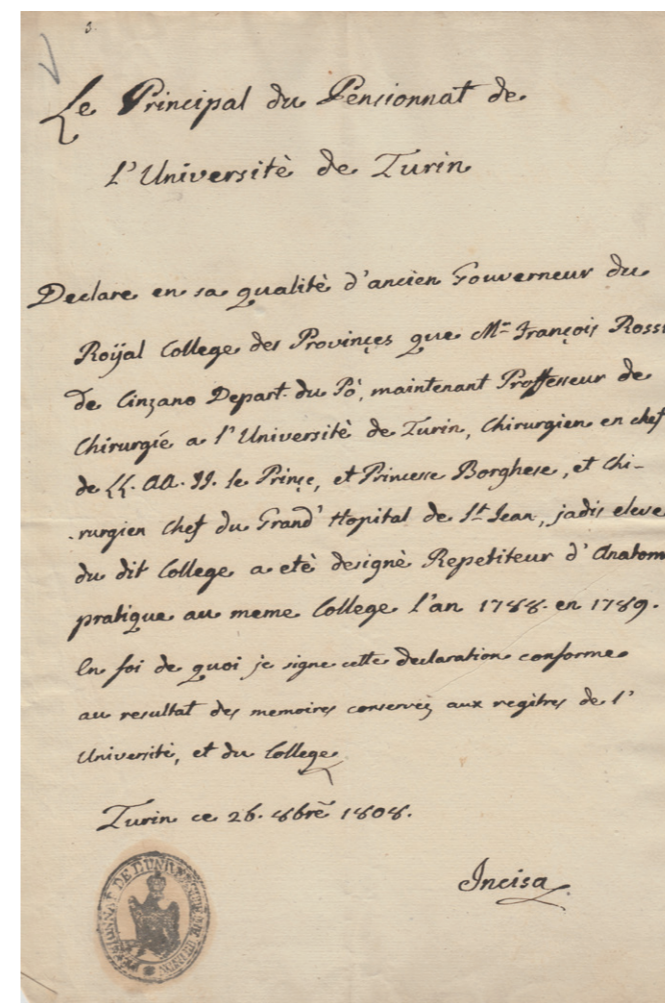 Le Principal du Pensionnat de
l'Université de Turin
Declare en sa qualité d'ancien Gouverneur du
Roÿal College des Provinçes que Mr François Rossi
de Cinzano Depart. du Pò, maintenant Proffesseur de
Chirurgie a l'Université de Turin, Chirurgien en chef
de LL. AA. II. le Prinçe, et Princesse Borghese, et Chi-
rurgien Chef du Grand' Hopital de St Jean, jadis eleve
du dit College a etè designè Repetiteur d'Anatom
pratique au meme College l'an 1788. en 1789.
En foi de quoi je signe cette declaration conforme
au resultat des memoires conservéz aux regitres de l'
Université, et du College
Turin ce 26. 8bre 1808.
Incisa
PENSIONNAT DE L'UNIV